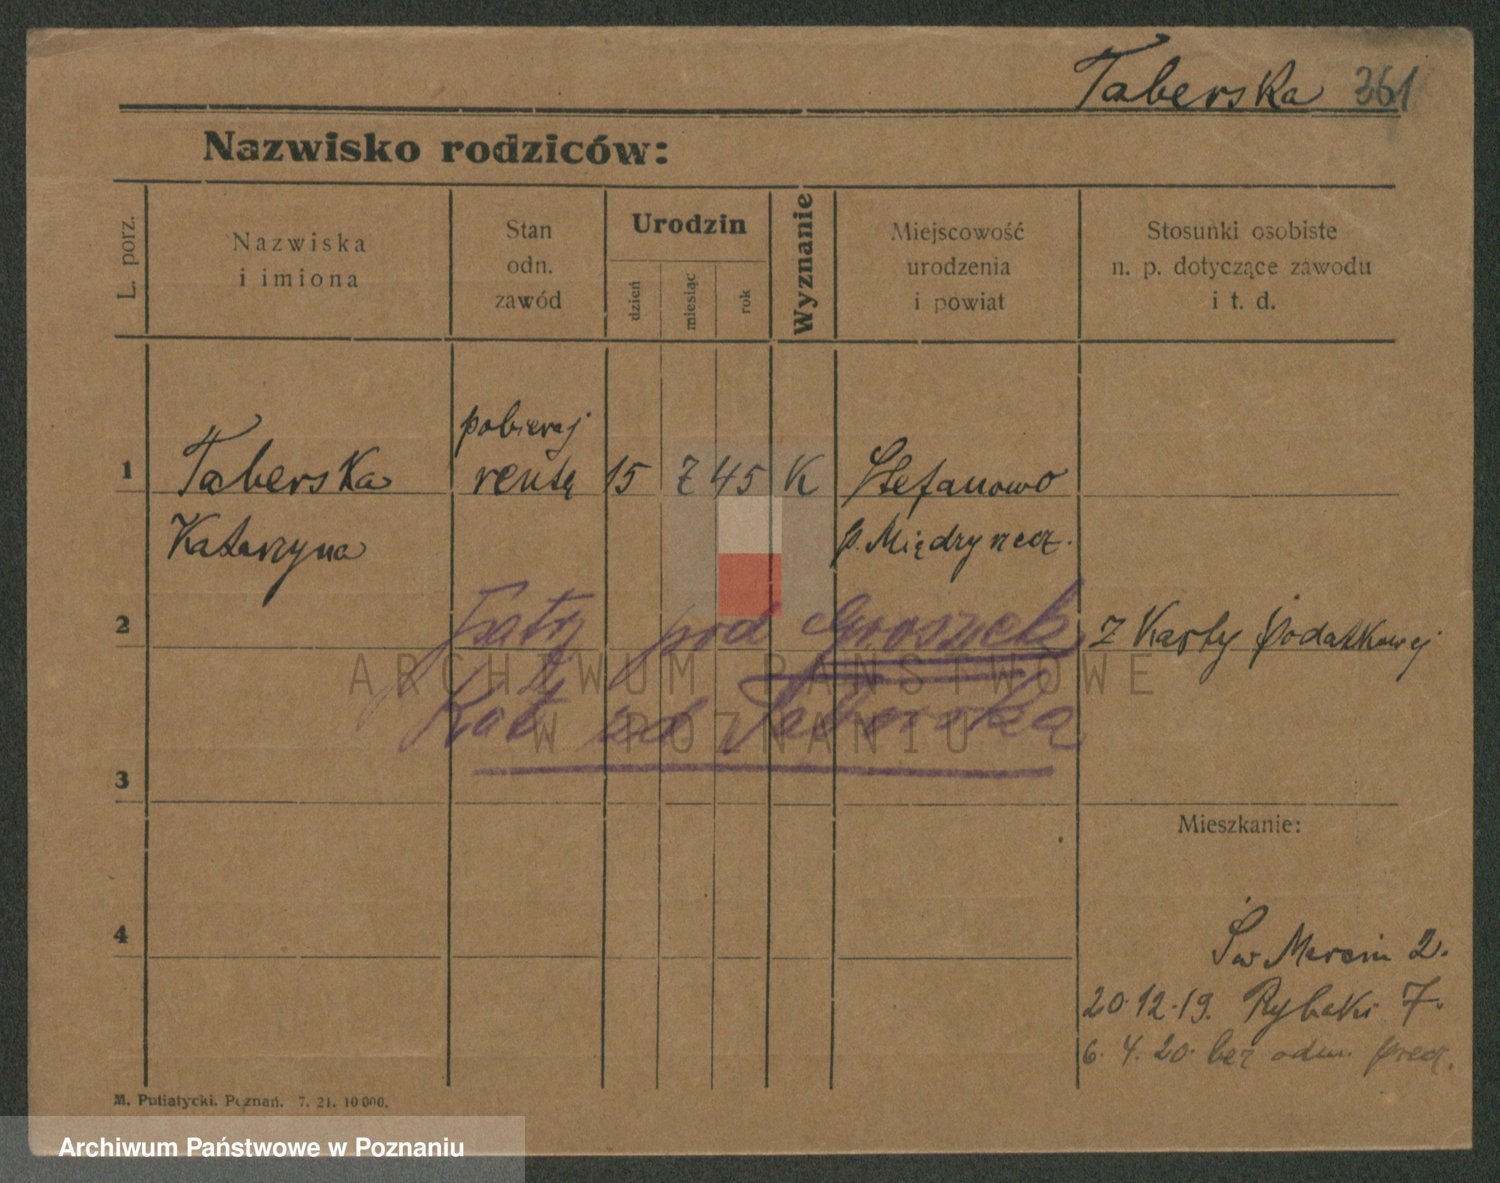 Taberska 361
Nazwisko rodziców:
L. porz.
Nazwiska
i imiona
Stan
odn.
zawód
Urodzin
dzień
miesiąc
rok
Wyznanie
Miejscowość
urodzenia
i powiat
Stosunki osobiste
n. p. dotyczące zawodu
i t. d.
pobieraj
1 Taberska rentę 15 7 45 K Stefanowo
Katarzyna p. Międzyrzecz.
2 pod Groszek z Karty podatkowej
Kat zd Taberska
3
Mieszkanie:
4
Św Marcin 2.
20.12.19. Rybaki 7.
6. 4. 20. bez odm.
M. Putiatycki. Poznań. 7. 21. 10 000.
ARCHIWUM PAŃSTWOWE
W POZNANIU
Archiwum Państwowe w Poznaniu